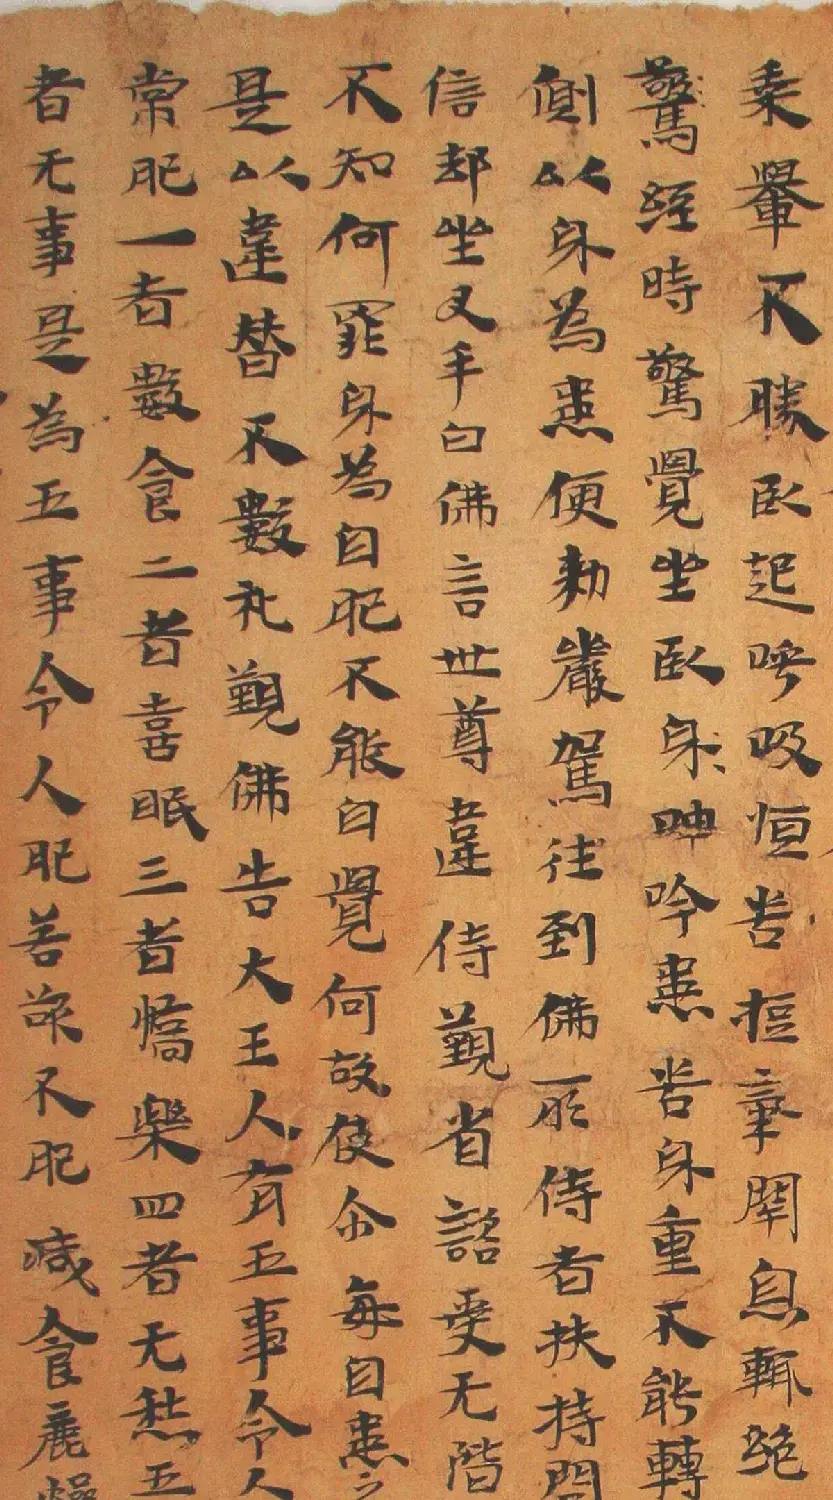 乘轝不勝臥起呼吸恒苦閇息輒絕
驚經時驚覺坐臥身呻吟患苦身重不能轉
側以身為患便勑嚴駕往到佛所侍者扶持問
信却坐叉手白佛言世尊違侍覲省諮受无階
不知何罪身為自肥不能自覺何故使尒每自患之
是以違替不數礼覲佛告大王人有五事令人
常肥一者數食二者喜眠三者憍樂四者无愁五
者无事是為五事令人肥若欲不肥減食麁燥